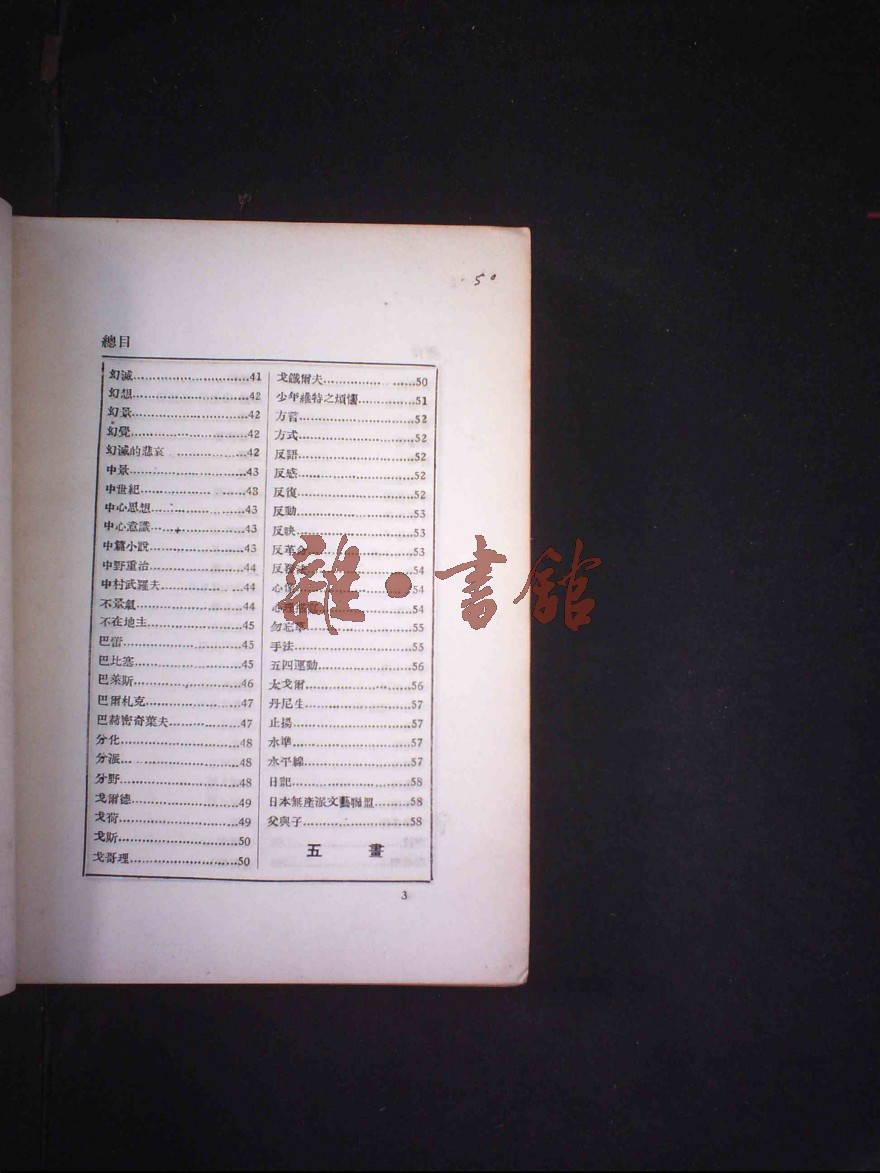 50
總目
幻滅…………41
幻想…………42
幻景…………42
幻覺…………42
幻滅的悲哀…………42
中景…………43
中世紀…………43
中心思想…………43
中心意識…………43
中篇小說…………43
中野重治…………44
中村武羅夫…………44
不景氣…………44
不在地主…………45
巴雷…………45
巴比塞…………45
巴萊斯…………46
巴爾札克…………47
巴赫密奇葉夫…………47
分化…………48
分派…………48
分野…………48
戈爾德…………49
戈荷…………49
戈斯…………50
戈哥理…………50
戈鐵爾夫…………50
少年維特之煩惱…………51
方言…………52
方式…………52
反語…………52
反感…………52
反復…………52
反動…………53
反映…………53
反革命…………53
反…………54
心…………54
心理…………54
勿忘草…………55
手法…………55
五四運動…………56
太戈爾…………56
丹尼生…………57
止揚…………57
水準…………57
水平線…………57
日記…………58
日本無產派文藝聯盟…………58
父與子…………58
五畫
3
雜·書館